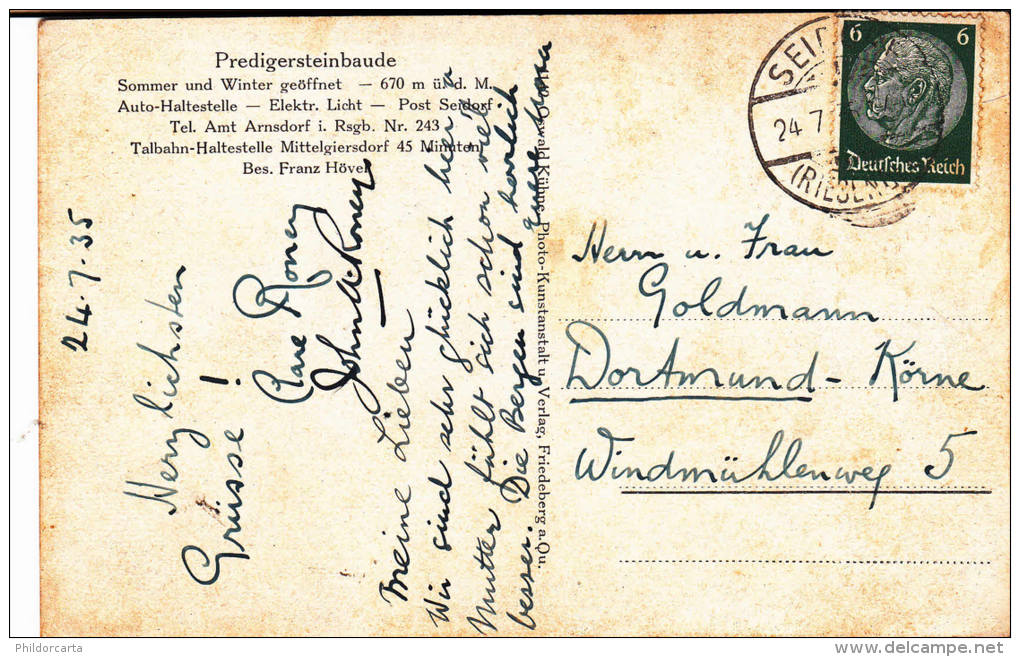 Predigersteinbaude
Sommer und Winter geöffnet — 670 m ü. d. M.
Auto-Haltestelle — Elektr. Licht — Post Seidorf
Tel. Amt Arnsdorf i. Rsgb. Nr. 243
Talbahn-Haltestelle Mittelgiersdorf 45 Minuten
Bes. Franz Höver
24.7.35
Meine Lieben
Wir sind sehr glücklich heer u
Mutter fühlt sich schon viel
besser. Die Bergen sind herrlich
Herzlichsten
Grüsse !
Rooney
John Rooney
Oswald Kühne, Photo-Kunstanstalt u. Verlag, Friedeberg a. Qu.
SEID
24 7
(RIESENG
6 6
Deutsches Reich
Herrn u. Frau
Goldmann
Dortmund - Körne
Windmühlenweg 5
Phildorcarta
delcampe.net